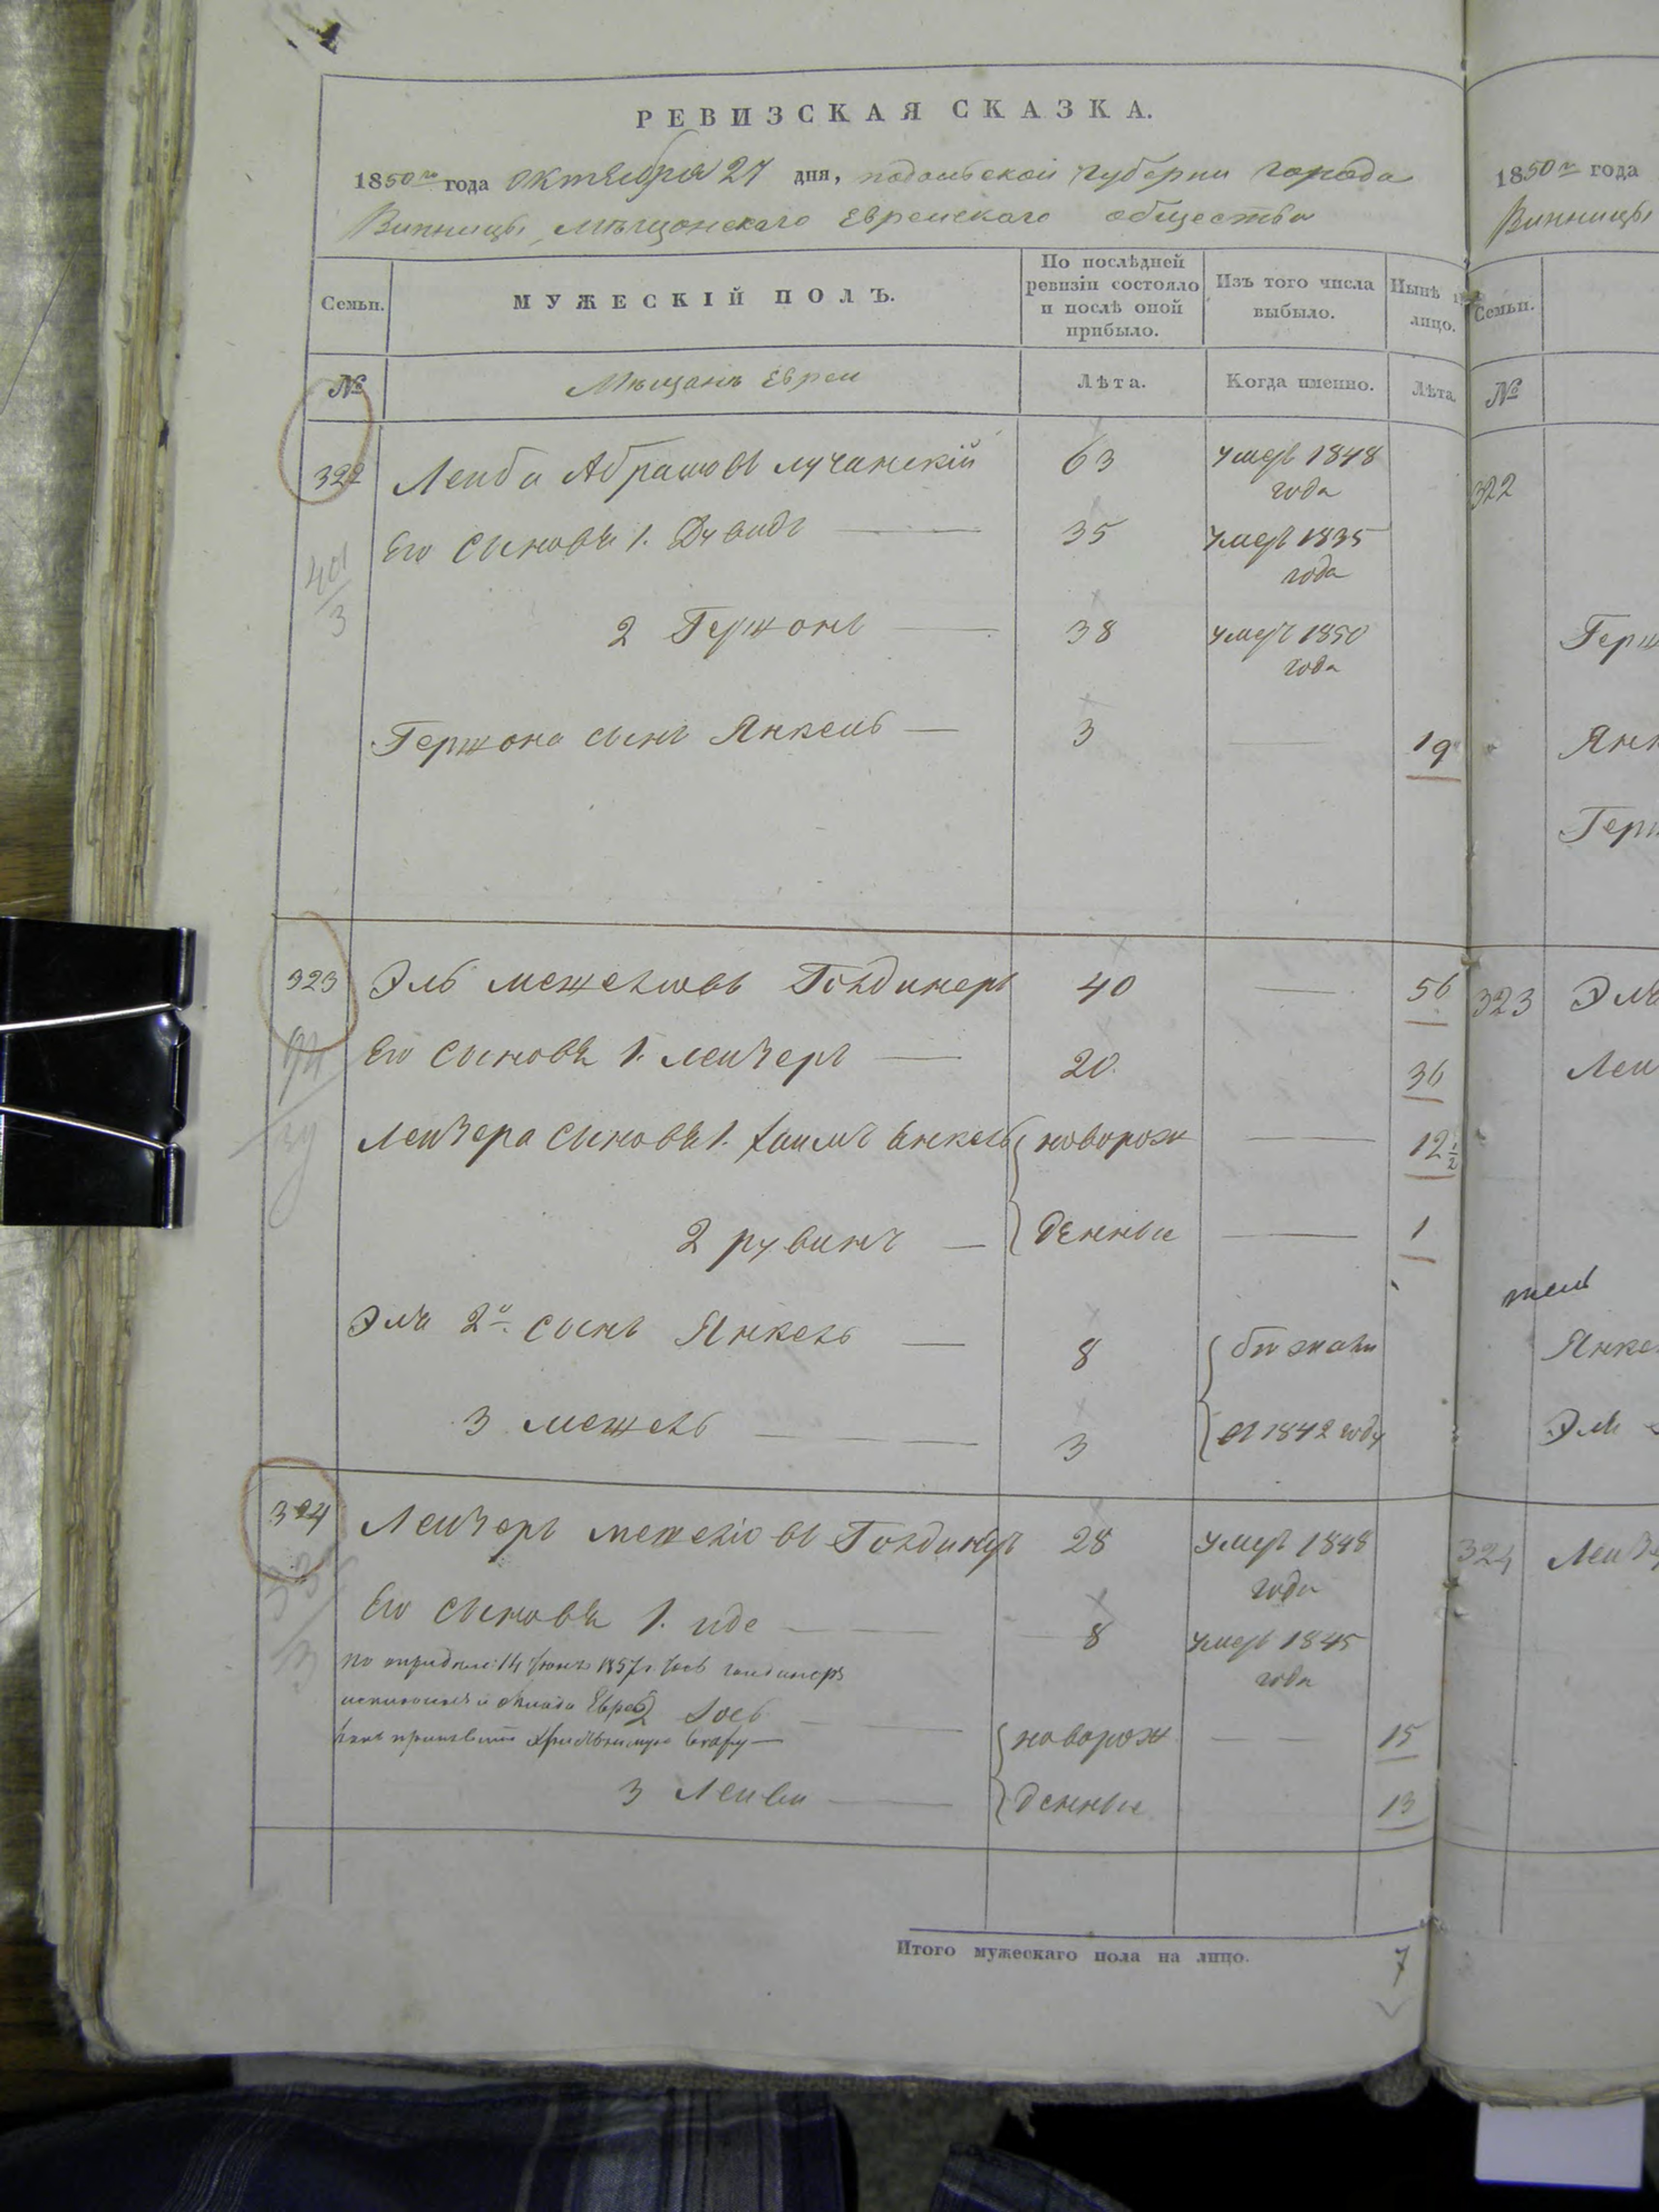 РЕВИЗСКАЯ СКАЗКА.
1850го года октября 27 дня, подольской губернии города
Винницы мѣщанскаго Еврейскаго общества
Семьи. МУЖЕСКІЙ ПОЛЪ. По послѣдней ревизіи состояло и послѣ оной прибыло. Изъ того числа выбыло. Нынѣ на лицо.
№ Мѣщанъ Евреи Лѣта. Когда именно. Лѣта.
322 Лейба Абрамовъ лучанскій 63 умеръ 1848 года
401/3
Его сыновья 1. Дувидъ 35 умеръ 1835 года
2 Гершонъ 38 умеръ 1850 года
Гершона сынъ Янкель 3 19
323 Эль межеховъ Голдинеръ 40 56
Его сыновья 1. лейзеръ 20 36
Лейзера сыновья 1. Хаимъ Янкель новорож 12 1/2
2 рувинъ денные 1
Эля 2й сынъ Янкель 8 бѣжали
3 межель 3 съ 1842 году
324 Лейзеръ межеховъ Голдинеръ 28 умеръ 1848 года
Его сыновья 1. иде 8 умеръ 1845 года
14 1857 г.
2 новорож 15
3 Лейви денные 13
Итого мужескаго пола на лицо. 7
1850го года
Винницы
Семьи.
№
322
Герш
Янк
Герш
323 Эля
Лей
Янке
Эля
324 Лейзе